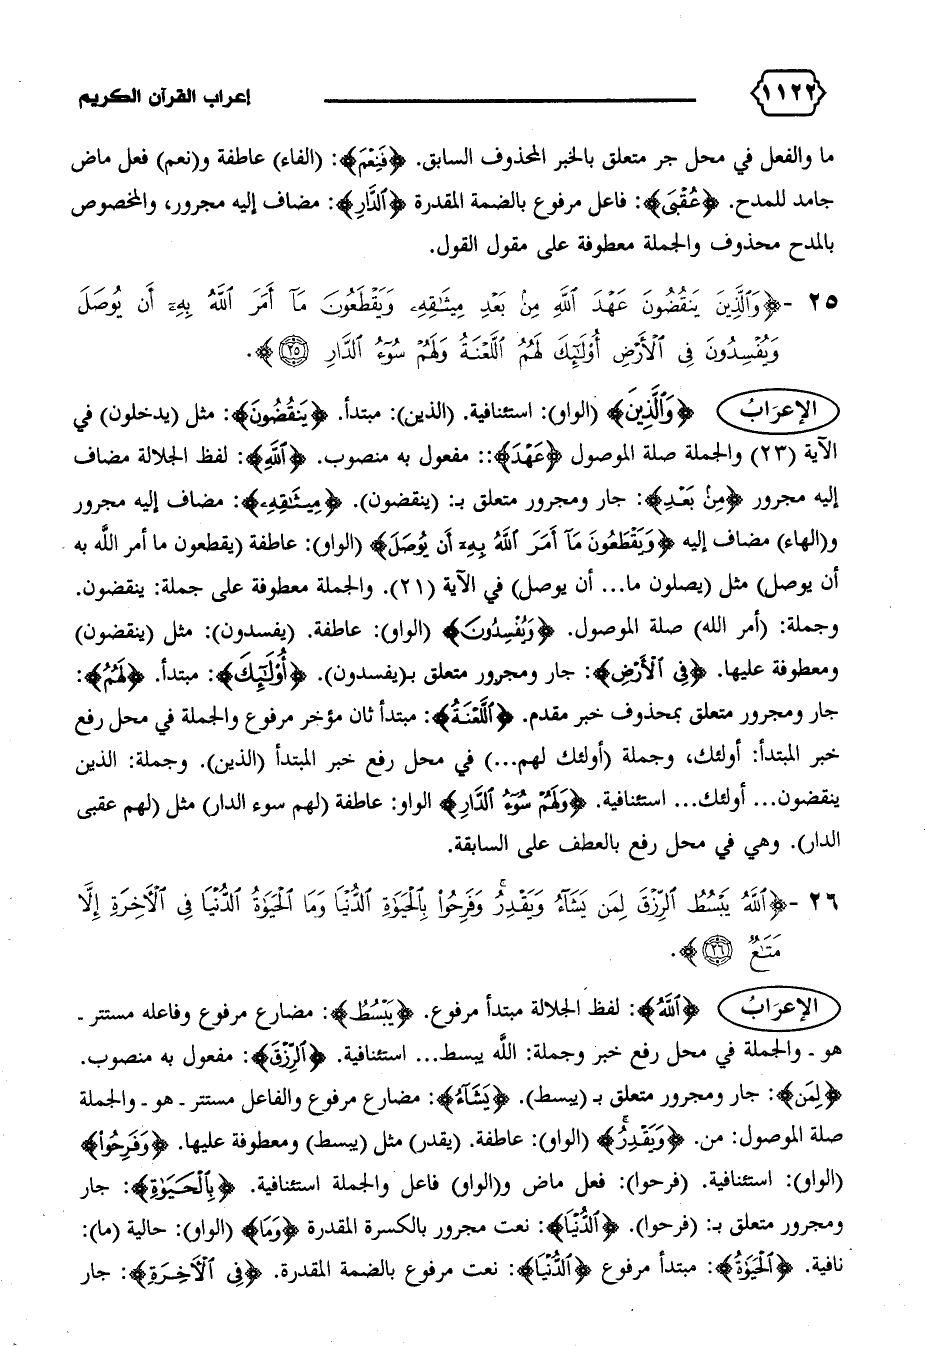 ١١٢٢ إعراب القرآن الكريم
ما والفعل في محل جر متعلق بالخبر المحذوف السابق. ﴿فَنِعْمَ﴾: (الفاء) عاطفة و(نعم) فعل ماض
جامد للمدح. ﴿عُقْبَى﴾: فاعل مرفوع بالضمة المقدرة ﴿ٱلدَّارِ﴾: مضاف إليه مجرور، والمخصوص
بالمدح محذوف والجملة معطوفة على مقول القول.
٢٥ -﴿وَٱلَّذِينَ يَنقُضُونَ عَهْدَ ٱللَّهِ مِنۢ بَعْدِ مِيثَٰقِهِۦ وَيَقْطَعُونَ مَآ أَمَرَ ٱللَّهُ بِهِۦٓ أَن يُوصَلَ
وَيُفْسِدُونَ فِى ٱلْأَرْضِ أُو۟لَٰٓئِكَ لَهُمُ ٱللَّعْنَةُ وَلَهُمْ سُوٓءُ ٱلدَّارِ ٢٥﴾.
الإعرَابُ ﴿وَٱلَّذِينَ﴾ (الواو): استئنافية. (الذين): مبتدأ. ﴿يَنقُضُونَ﴾: مثل (يدخلون) في
الآية (٢٣) والجملة صلة الموصول ﴿عَهْدَ﴾:: مفعول به منصوب. ﴿ٱللَّهِ﴾: لفظ الجلالة مضاف
إليه مجرور ﴿مِنۢ بَعْدِ﴾: جار ومجرور متعلق بـ: (ينقضون). ﴿مِيثَٰقِهِۦ﴾: مضاف إليه مجرور
و(الهاء) مضاف إليه ﴿وَيَقْطَعُونَ مَآ أَمَرَ ٱللَّهُ بِهِۦٓ أَن يُوصَلَ﴾ (الواو): عاطفة (يقطعون ما أمر اللَّه به
أن يوصل) مثل (يصلون ما... أن يوصل) في الآية (٢١). والجملة معطوفة على جملة: ينقضون.
وجملة: (أمر الله) صلة الموصول. ﴿وَيُفْسِدُونَ﴾ (الواو): عاطفة. (يفسدون): مثل (ينقضون)
ومعطوفة عليها. ﴿فِى ٱلْأَرْضِ﴾: جار ومجرور متعلق بـ(يفسدون). ﴿أُو۟لَٰٓئِكَ﴾: مبتدأ. ﴿لَهُمُ﴾:
جار ومجرور متعلق بمحذوف خبر مقدم. ﴿ٱللَّعْنَةُ﴾: مبتدأ ثان مؤخر مرفوع والجملة في محل رفع
خبر المبتدأ: أولئك، وجملة (أولئك لهم...) في محل رفع خبر المبتدأ (الذين). وجملة: الذين
ينقضون... أولئك... استئنافية. ﴿وَلَهُمْ سُوٓءُ ٱلدَّارِ﴾ الواو: عاطفة (لهم سوء الدار) مثل (لهم عقبى
الدار). وهي في محل رفع بالعطف على السابقة.
٢٦ -﴿ٱللَّهُ يَبْسُطُ ٱلرِّزْقَ لِمَن يَشَآءُ وَيَقْدِرُ ۚ وَفَرِحُوا۟ بِٱلْحَيَوٰةِ ٱلدُّنْيَا وَمَا ٱلْحَيَوٰةُ ٱلدُّنْيَا فِى ٱلْأَخِرَةِ إِلَّا
مَتَٰعٌ ٢٦﴾.
الإعرَابُ ﴿ٱللَّهُ﴾: لفظ الجلالة مبتدأ مرفوع. ﴿يَبْسُطُ﴾: مضارع مرفوع وفاعله مستتر ـ
هو ـ والجملة في محل رفع خبر وجملة: اللَّه يبسط... استئنافية. ﴿ٱلرِّزْقَ﴾: مفعول به منصوب.
﴿لِمَن﴾: جار ومجرور متعلق بـ (يبسط). ﴿يَشَآءُ﴾: مضارع مرفوع والفاعل مستتر ـ هو ـ والجملة
صلة الموصول: من. ﴿وَيَقْدِرُ ۚ﴾ (الواو): عاطفة. (يقدر) مثل (يبسط) ومعطوفة عليها. ﴿وَفَرِحُوا۟﴾
(الواو): استئنافية. (فرحوا): فعل ماض و(الواو) فاعل والجملة استئنافية. ﴿بِٱلْحَيَوٰةِ﴾: جار
ومجرور متعلق بـ: (فرحوا). ﴿ٱلدُّنْيَا﴾: نعت مجرور بالكسرة المقدرة ﴿وَمَا﴾ (الواو): حالية (ما):
نافية. ﴿ٱلْحَيَوٰةُ﴾: مبتدأ مرفوع ﴿ٱلدُّنْيَا﴾: نعت مرفوع بالضمة المقدرة. ﴿فِى ٱلْأَخِرَةِ﴾: جار